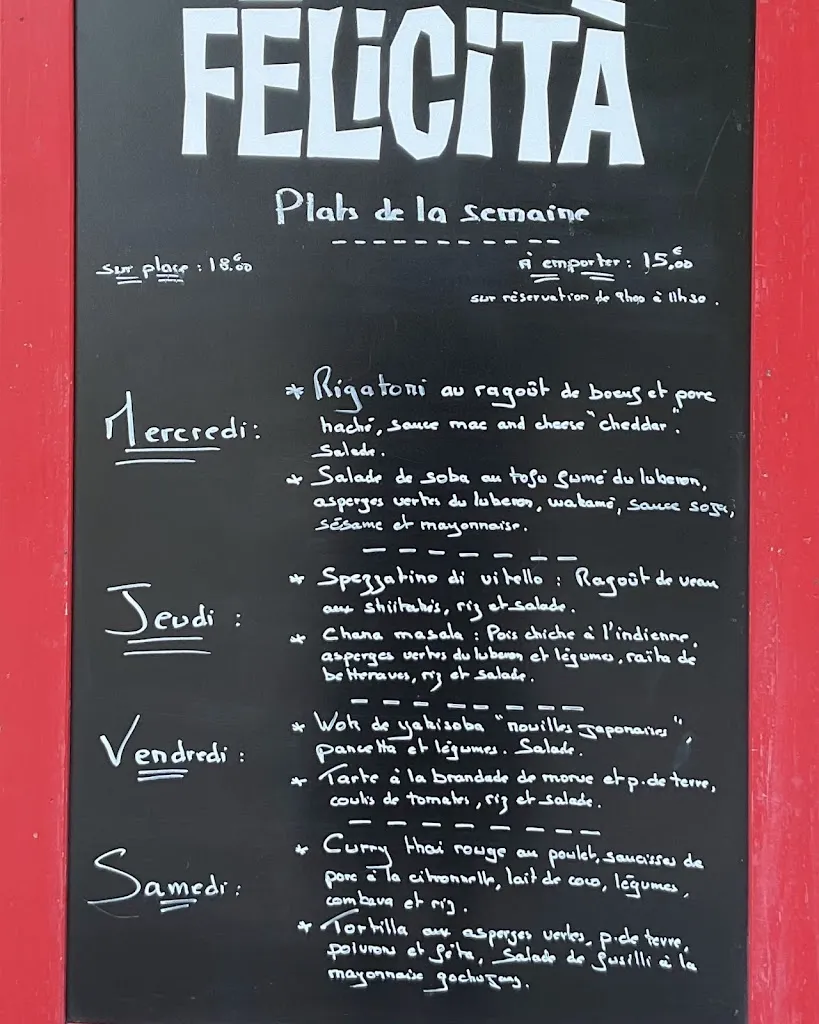 FÉLICITÀ
Plats de la semaine
sur place : 18.€00
À emporter : 15.€00
sur réservation de 9h00 à 11h30.
Mercredi :
* Rigatoni au ragoût de boeuf et porc
haché, sauce mac and cheese "cheddar".
Salade.
* Salade de soba au tofu fumé du luberon,
asperges vertes du luberon, wakamé, sauce soja,
sésame et mayonnaise.
Jeudi :
* Spezzatino di vitello : Ragoût de veau
aux shiitakés, riz et salade.
* Chana masala : Pois chiche à l'indienne,
asperges vertes du luberon et légumes, raïta de
betteraves, riz et salade.
Vendredi :
* Wok de yakisoba "nouilles japonaises",
pancetta et légumes. Salade.
* Tarte à la brandade de morue et p.de terre,
coulis de tomates, riz et salade.
Samedi :
* Curry thaï rouge au poulet, saucisses de
porc à la citronnelle, lait de coco, légumes,
combava et riz.
* Tortilla aux asperges vertes, p.de terre,
poivrons et féta, Salade de fusilli à la
mayonnaise gochujang.